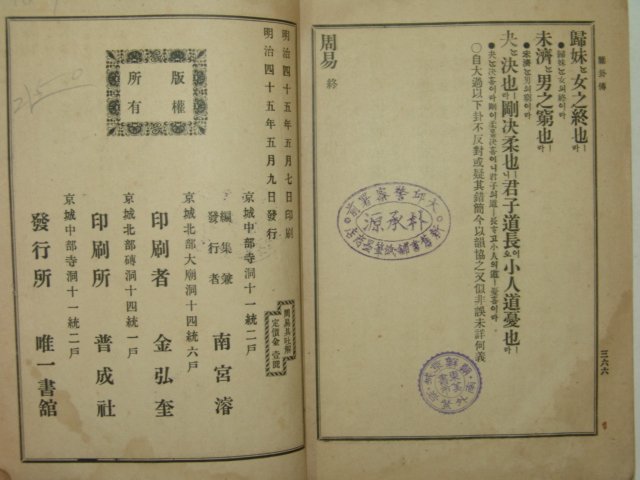 雜卦傳
歸妹는女之終也라
●歸妹는女의終이라
未濟는男之窮也라
●未濟는男의窮이라
夬는決也라剛決柔也니君子道長이오小人道憂也라
○自大過以下卦不反對或疑其錯簡今以韻協之又似非誤未詳何義
周易 終
三六六
朴承源
版權
所有
明治四十五年五月七日印刷
明治四十五年五月九日發行
周易具吐解
定價金 壹圜
京城中部寺洞十一統二戸
編集兼
發行者 南宮濬
京城北部大廟洞十四統六戸
印刷者 金弘奎
京城北部磚洞十四統一戸
印刷所 普成社
京城中部寺洞十一統二戸
發行所 唯一書館